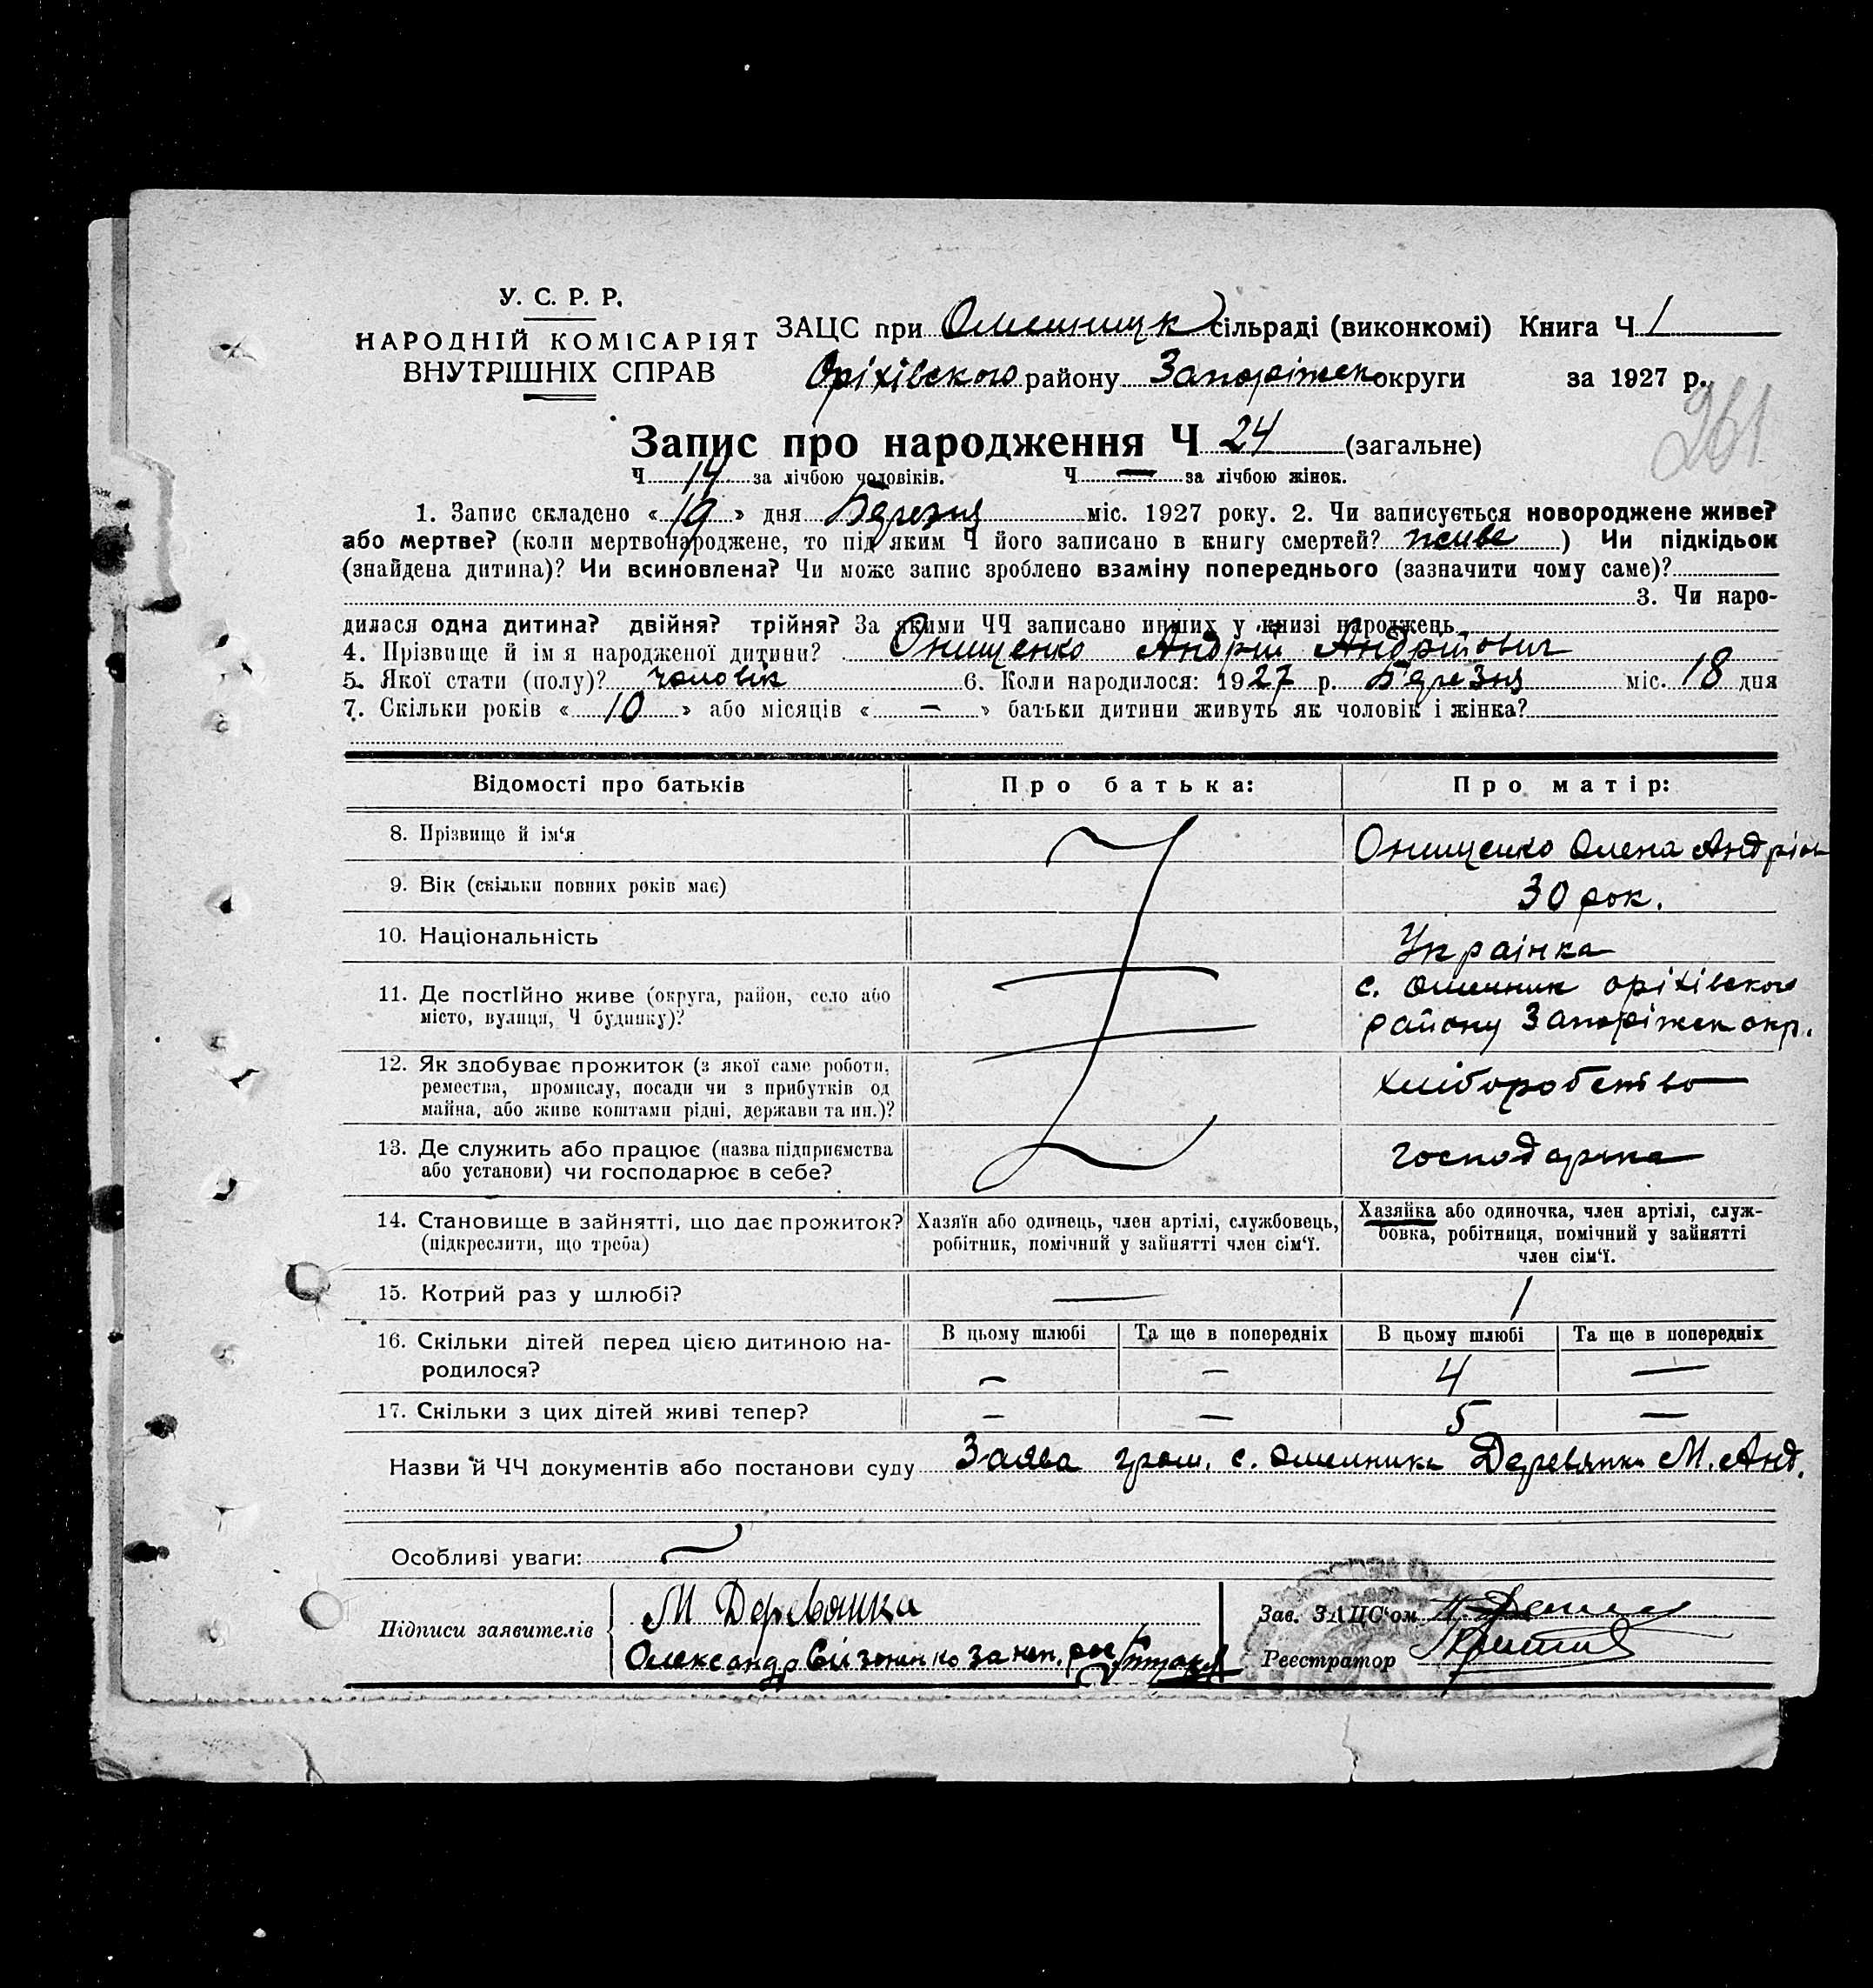 У. С. Р. Р.
НАРОДНІЙ КОМІСАРІЯТ
ВНУТРІШНІХ СПРАВ
ЗАЦС при Омельницк сільраді (виконкомі) Книга Ч 1
Оріхівського району Запоріжськ округи за 1927 р.
261
Запис про народження Ч 24 (загальне)
Ч 14 за лічбою чоловіків. Ч — за лічбою жінок.
1. Запис складено « 19 » дня Березня міс. 1927 року. 2. Чи записується новороджене живе?
або мертве? (коли мертвонароджене, то під яким Ч його записано в книгу смертей? живе ) Чи підкідьок
(знайдена дитина)? Чи всиновлена? Чи може запис зроблено взаміну попереднього (зазначити чому саме)?
3. Чи наро-
дилася одна дитина? двійня? трійня? За якими ЧЧ записано инших у книзі народжень
4. Прізвище й ім я народженої дитини? Онищенко Андрій Андрійович
5. Якої стати (полу)? чоловік 6. Коли народилося: 1927 р. Березня міс. 18 дня
7. Скільки років « 10 » або місяців « — » батьки дитини живуть як чоловік і жінка?
Відомості про батьків Про батька: Про матір:
8. Прізвище й ім‘я Онищенко Олена Андріов
9. Вік (скільки повних років має) 30 рок.
10. Національність Українка
11. Де постійно живе (округа, район, село або
місто, вулиця, Ч будинку)?
с. Омельник оріхівського
району Запоріжськ окр.
12. Як здобуває прожиток (з якої саме роботи,
ремества, промислу, посади чи з прибутків од
майна, або живе коштами рідні, держави та ин.)?
хліборобство
13. Де служить або працює (назва підприємства
або установи) чи господарює в себе?
господарка
14. Становище в зайнятті, що дає прожиток?
(підкреслити, що треба)
Хазяїн або одинець, член артілі, службовець,
робітник, помічний у зайнятті член сім‘ї.
Хазяйка або одиночка, член артілі, служ-
бовка, робітниця, помічний у зайнятті
член сім‘ї.
15. Котрий раз у шлюбі? — 1
16. Скільки дітей перед цією дитиною на-
родилося?
В цьому шлюбі Та ще в попередніх В цьому шлюбі Та ще в попередніх
— — 4 —
17. Скільки з цих дітей живі тепер? — — 5 —
Назви й ЧЧ документів або постанови суду Заява гром. с. Омельника Деревянки М. Анд.
Особливі уваги: —
Підписи заявителів
М Деревянка
Олександр за неп.
Зав. ЗАЦС‘ом
Реєстратор